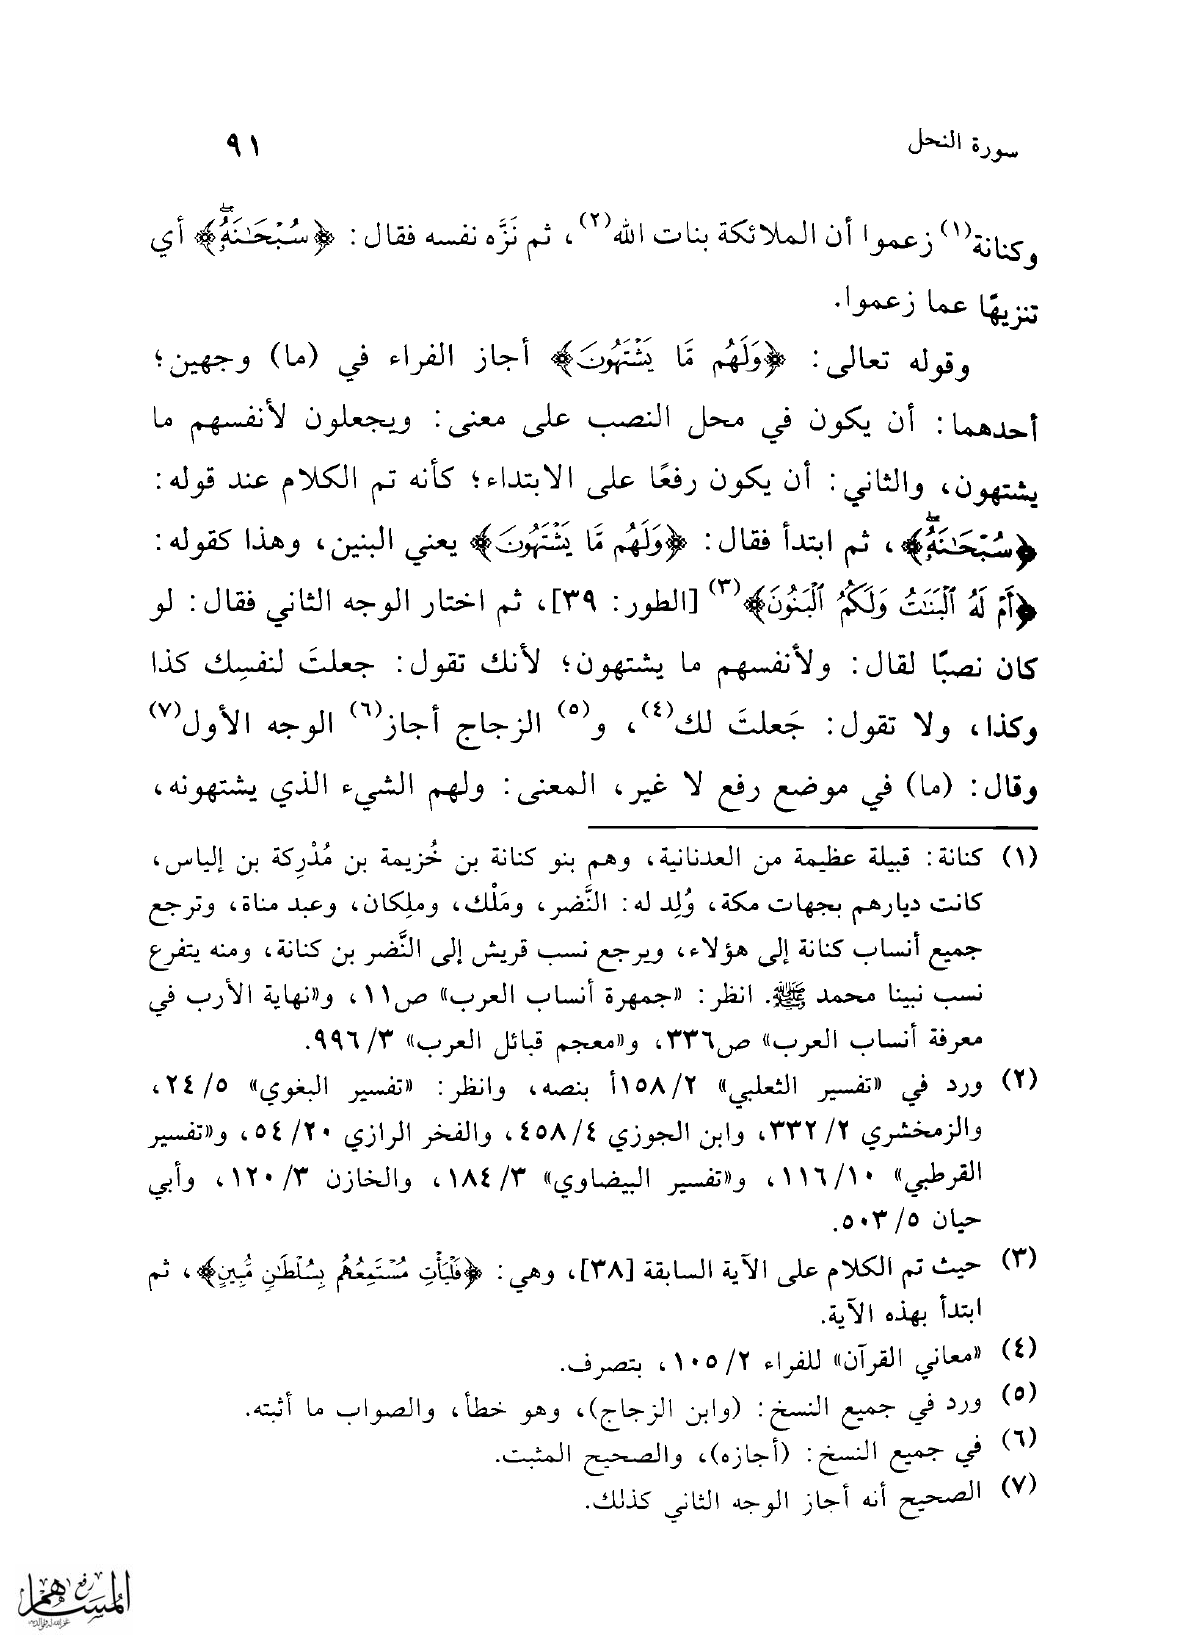 سورة النحل
٩١
وكنانة(١) زعموا أن الملائكة بنات الله(٢)، ثم نَزَّه نفسه فقال: ﴿سُبْحَٰنَهُۥۙ﴾ أي
تنزيهًا عما زعموا.
وقوله تعالى: ﴿وَلَهُم مَّا يَشْتَهُونَ﴾ أجاز الفراء في (ما) وجهين؛
أحدهما: أن يكون في محل النصب على معنى: ويجعلون لأنفسهم ما
يشتهون، والثاني: أن يكون رفعًا على الابتداء؛ كأنه تم الكلام عند قوله:
﴿سُبْحَٰنَهُۥۙ﴾، ثم ابتدأ فقال: ﴿وَلَهُم مَّا يَشْتَهُونَ﴾ يعني البنين، وهذا كقوله:
﴿أَمْ لَهُ ٱلْبَنَٰتُ وَلَكُمُ ٱلْبَنُونَ﴾(٣) [الطور: ٣٩]، ثم اختار الوجه الثاني فقال: لو
كان نصبًا لقال: ولأنفسهم ما يشتهون؛ لأنك تقول: جعلتَ لنفسِك كذا
وكذا، ولا تقول: جَعلتَ لك(٤)، و(٥) الزجاج أجاز(٦) الوجه الأول(٧)
وقال: (ما) في موضع رفع لا غير، المعنى: ولهم الشيء الذي يشتهونه،
(١) كنانة: قبيلة عظيمة من العدنانية، وهم بنو كنانة بن خُزيمة بن مُدْرِكة بن إلياس،
كانت ديارهم بجهات مكة، وُلِد له: النَّضر، ومَلْك، وملِكان، وعبد مناة، وترجع
جميع أنساب كنانة إلى هؤلاء، ويرجع نسب قريش إلى النَّضر بن كنانة، ومنه يتفرع
نسب نبينا محمد ﷺ. انظر: «جمهرة أنساب العرب» ص١١، و«نهاية الأرب في
معرفة أنساب العرب» ص٣٣٦، و«معجم قبائل العرب» ٣/ ٩٩٦.
(٢) ورد في «تفسير الثعلبي» ٢/ ١٥٨أ بنصه، وانظر: «تفسير البغوي» ٥/ ٢٤،
والزمخشري ٢/ ٣٣٢، وابن الجوزي ٤/ ٤٥٨، والفخر الرازي ٢٠/ ٥٤، و«تفسير
القرطبي» ١٠/ ١١٦، و«تفسير البيضاوي» ٣/ ١٨٤، والخازن ٣/ ١٢٠، وأبي
حيان ٥/ ٥٠٣.
(٣) حيث تم الكلام على الآية السابقة [٣٨]، وهي: ﴿فَلْيَأْتِ مُسْتَمِعُهُم بِسُلْطَٰنٍ مُّبِينٍ﴾، ثم
ابتدأ بهذه الآية.
(٤) «معاني القرآن» للفراء ٢/ ١٠٥، بتصرف.
(٥) ورد في جميع النسخ: (وابن الزجاج)، وهو خطأ، والصواب ما أثبته.
(٦) في جميع النسخ: (أجازه)، والصحيح المثبت.
(٧) الصحيح أنه أجاز الوجه الثاني كذلك.
رفع
المساهم